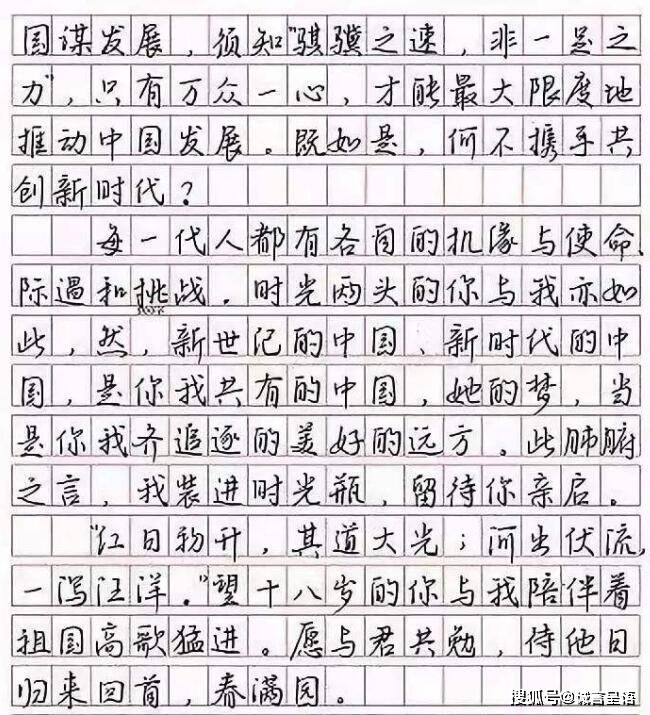 国谋发展，须知“骐骥之速，非一足之
力”，只有万众一心，才能最大限度地
推动中国发展。既如是，何不携手共
创新时代？
每一代人都有各自的机缘与使命、
际遇和挑战。时光两头的你与我亦如
此，然，新世纪的中国、新时代的中
国，是你我共有的中国，她的梦，当
是你我齐追逐的美好的远方。此肺腑
之言，我装进时光瓶，留待你亲启。
“红日初升，其道大光；河出伏流，
一泻汪洋。”望十八岁的你与我陪伴着
祖国高歌猛进。愿与君共勉，待他日
归来回首，春满园。
搜狐号@诚言呈语